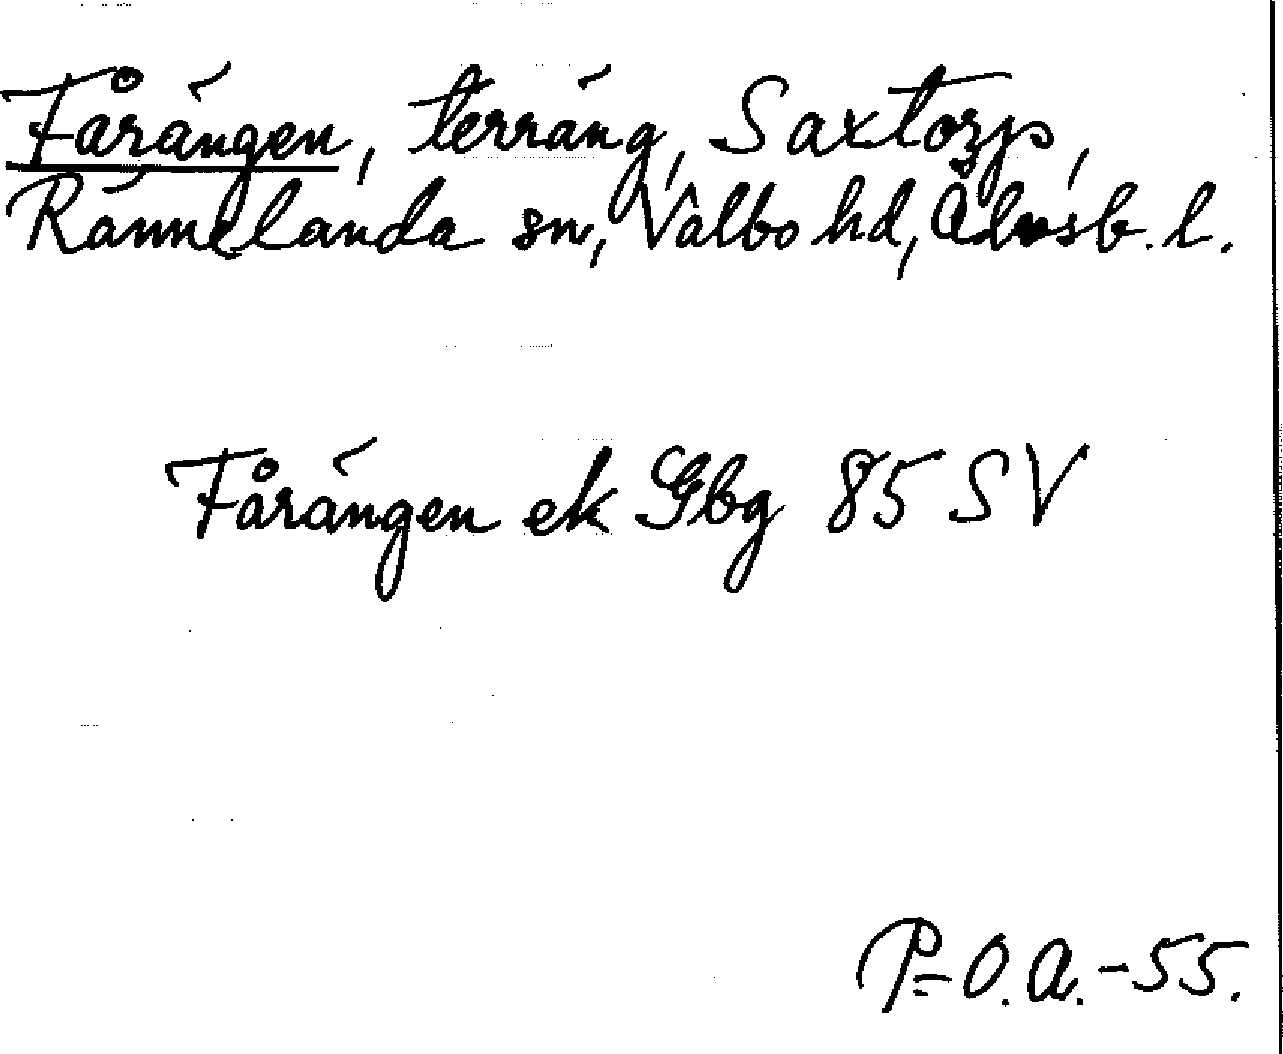 Fårängen, terräng, Saxtorp,
Rännelanda sn, Valbo hd, Älvsb. l.
Fårängen ek Gbg 85 SV
P-O.A.-55.